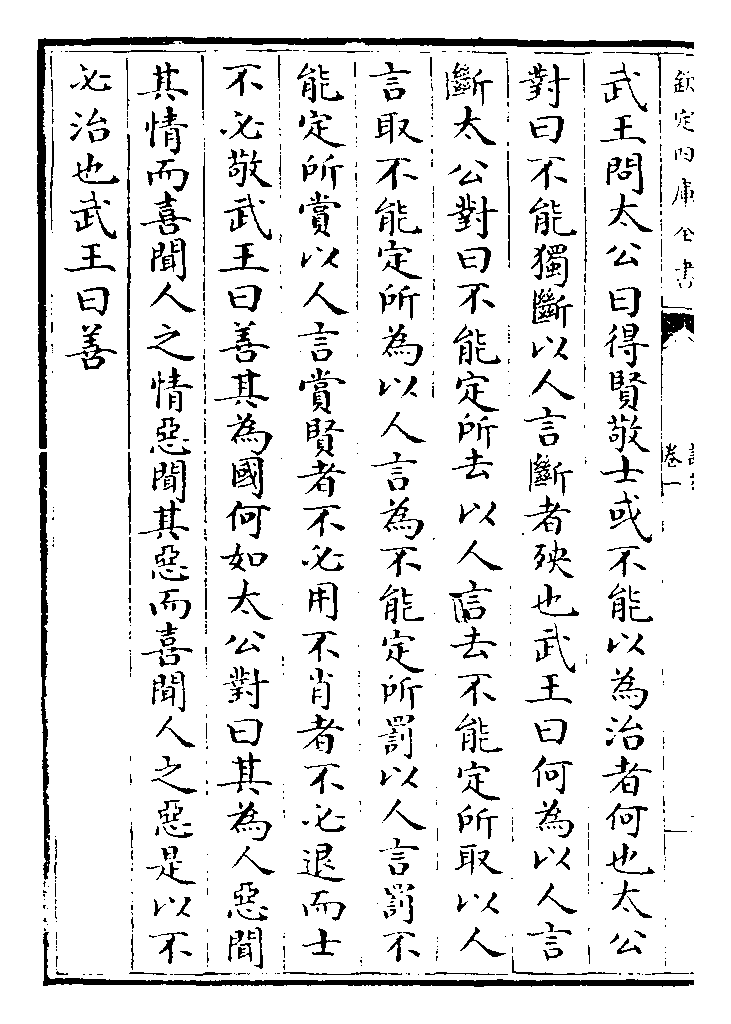 欽定四庫全書
卷一
武王問太公曰得賢敬士或不能以為治者何也太公
對曰不能獨斷以人言斷者殃也武王曰何為以人言
斷太公對曰不能定所去以人言去不能定所取以人
言取不能定所為以人言為不能定所罰以人言罰不
能定所賞以人言賞賢者不必用不肖者不必退而士
不必敬武王曰善其為國何如太公對曰其為人惡聞
其情而喜聞人之情惡聞其惡而喜聞人之惡是以不
必治也武王曰善